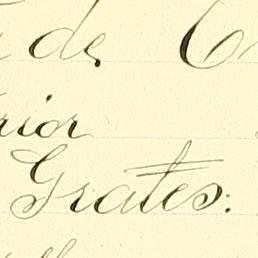 de
rior
Grates: